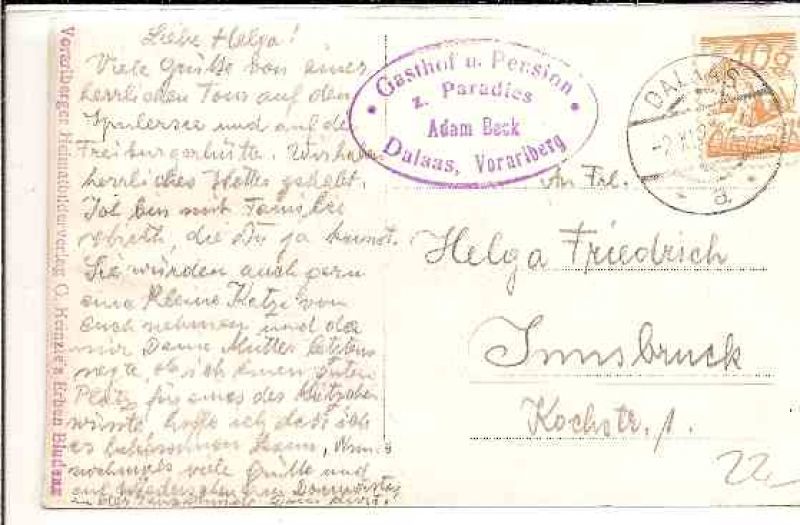 Liebe Helga!
Viele Grüße von einer
herrlichen Tour auf den
Spullersee und auf die
Freiburgerhütte. Wir haben
herrliches Wetter gehabt.
Ich bin mit Familie
die Du ja kennst.
Sie würden auch gern
eine kleine Katze von
Euch nehmen und da
mir Deine Mutter letztens
sagte, ob ich einen guten
Platz für eines der Kätzchen
wüsste, hoffe ich dass ich
es bekommen kann,
nochmals viele Grüße und
auf Wiedersehen Donnerstag
in der
Vorarlberger Heimatbilderverlag C. Erben Bludenz
Gasthof u. Pension
z. Paradies
Adam Beck
Dalaas, Vorarlberg
10g
DALAAS
a
An Frl.
Helga Friedrich
Innsbruck
Kochstr. 1.
22,-